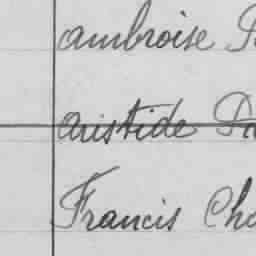 ambroise
aristide
Francis